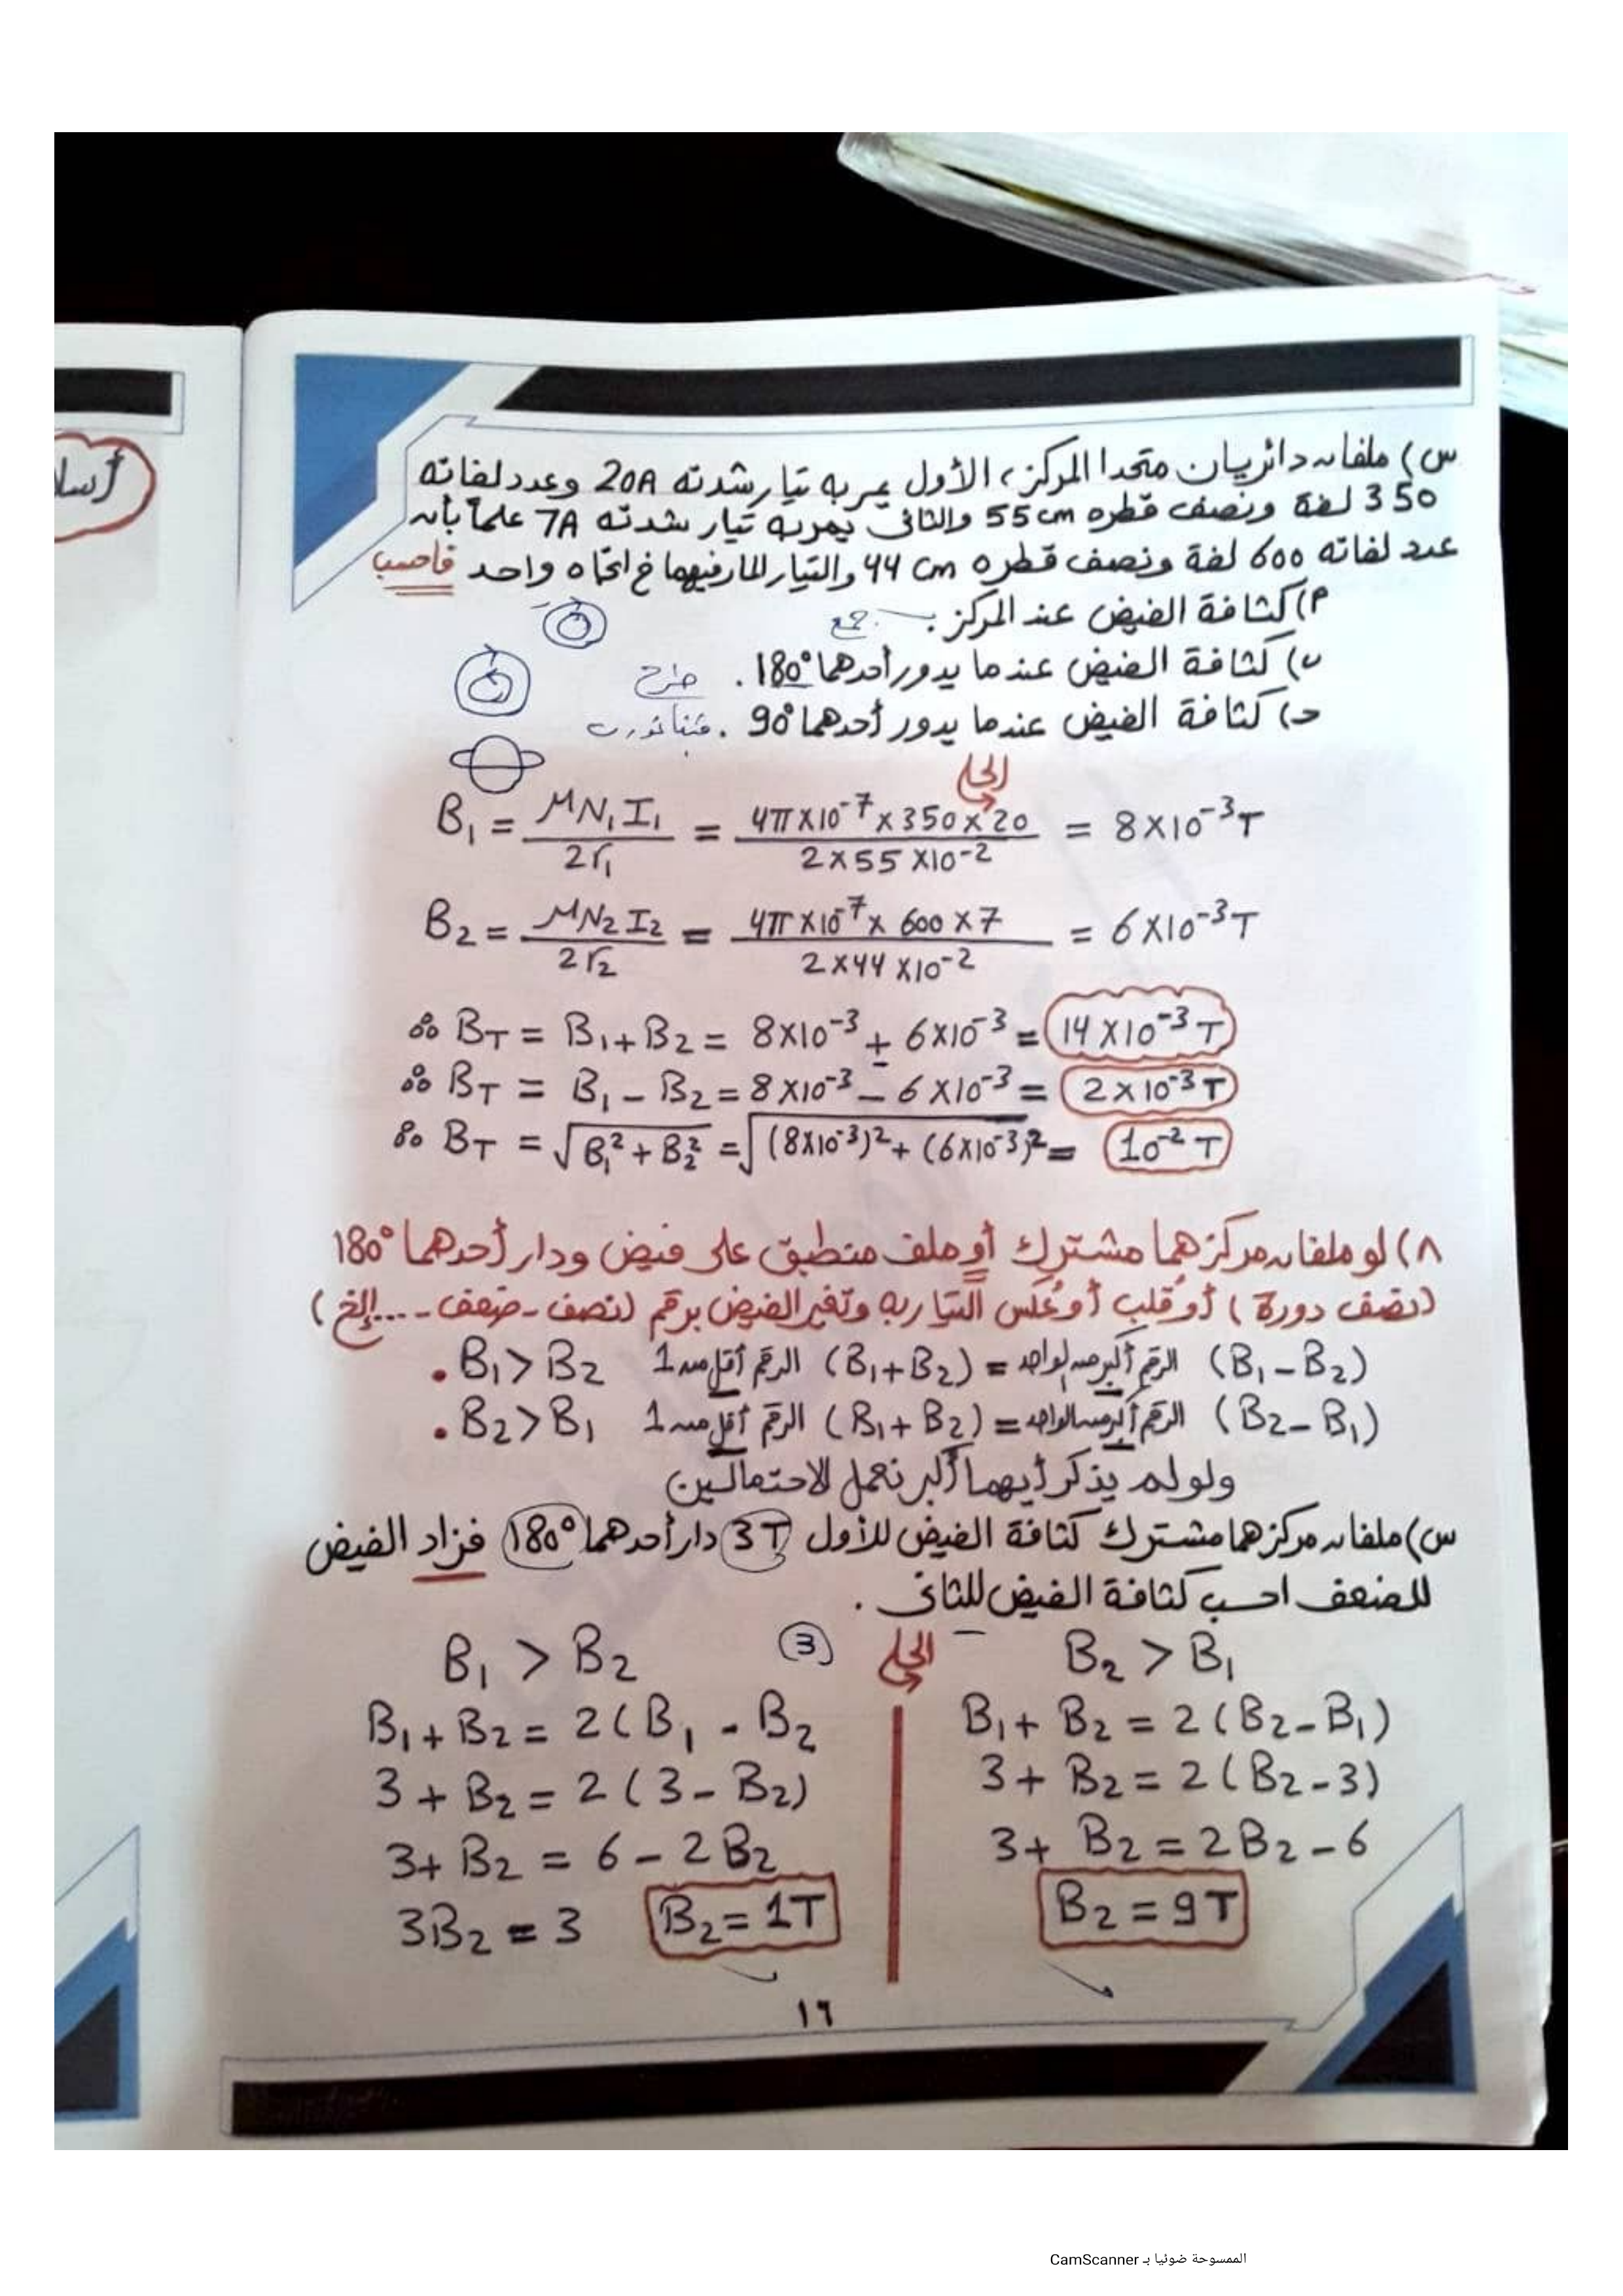 أسلا
س) ملفان دائريان متحدا المركز، الأول يمر به تيار شدته 20A وعدد لفاته
350 لفة ونصف قطره 55cm والثاني يمر به تيار شدته 7A علماً بأن
عدد لفاته 600 لفة ونصف قطره 44 cm والتيار المار فيهما في اتجاه واحد فاحسب
م) كثافة الفيض عند المركز. جمع
ب) كثافة الفيض عندما يدور أحدهما 180°. طرح
حـ) كثافة الفيض عندما يدور أحدهما 90°. فيثاغورث
الحل
B₁ = μN₁I₁ / 2r₁ = 4π×10⁻⁷×350×20 / 2×55×10⁻² = 8×10⁻³T
B₂ = μN₂I₂ / 2r₂ = 4π×10⁻⁷×600×7 / 2×44×10⁻² = 6×10⁻³T
∴ B_T = B₁+B₂ = 8×10⁻³ + 6×10⁻³ = 14×10⁻³T
∴ B_T = B₁−B₂ = 8×10⁻³ − 6×10⁻³ = 2×10⁻³T
∴ B_T = √(B₁²+B₂²) = √((8×10⁻³)²+(6×10⁻³)²) = 10⁻²T
٨) لو ملفان مركزهما مشترك أو ملف منطبق على فيض ودار أحدهما 180°
(نصف دورة) أو قلب أو عكس التيار به وتغير الفيض برقم (نصف - ضعف - ....إلخ)
. B₁>B₂ الرقم أقل من 1 (B₁+B₂) = الرقم أكبر من الواحد (B₁−B₂)
. B₂>B₁ الرقم أقل من 1 (B₁+B₂) = الرقم أكبر من الواحد (B₂−B₁)
ولو لم يذكر أيهما أكبر نعمل الاحتمالين
س) ملفان مركزهما مشترك كثافة الفيض للأول 3T دار أحدهما 180° فزاد الفيض
للضعف احسب كثافة الفيض للثاني.
الحل
3
B₁ > B₂
B₁+B₂ = 2(B₁ - B₂
3+B₂ = 2(3−B₂)
3+B₂ = 6−2B₂
3B₂ = 3 B₂=1T
B₂ > B₁
B₁+B₂ = 2(B₂−B₁)
3+B₂ = 2(B₂−3)
3+B₂ = 2B₂−6
B₂ = 9T
١٦
الممسوحة ضوئيا بـ CamScanner